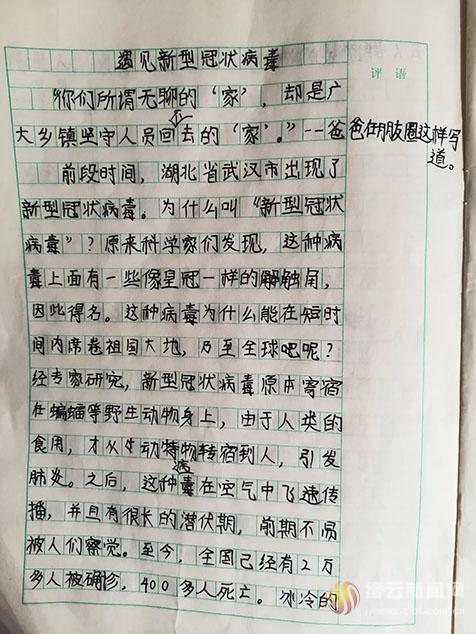 遇见新型冠状病毒
评语
“你们所谓无聊的‘家’，却是广
大乡镇坚守人员回去的‘家’。”--爸爸在朋友圈这样写
道。
前段时间，湖北省武汉市出现了
新型冠状病毒。为什么叫“新型冠状
病毒”？原来科学家们发现，这种病
毒上面有一些像皇冠一样的触角，
因些得名。这种病毒为什么能在短时
间内席卷祖国大地，乃至全球呢？
经专家研究，新型冠状病毒原本寄宿
在蝙蝠等野生动物身上，由于人类的
食用，才从动物转宿到人，引发
肺炎。之后，这种病毒在空气中飞速传
播，并且有很长的潜伏期，前期不易
被人们察觉。至今，全国已经有2万
多人被确诊，400多人死亡。冰冷的
缙云新闻网